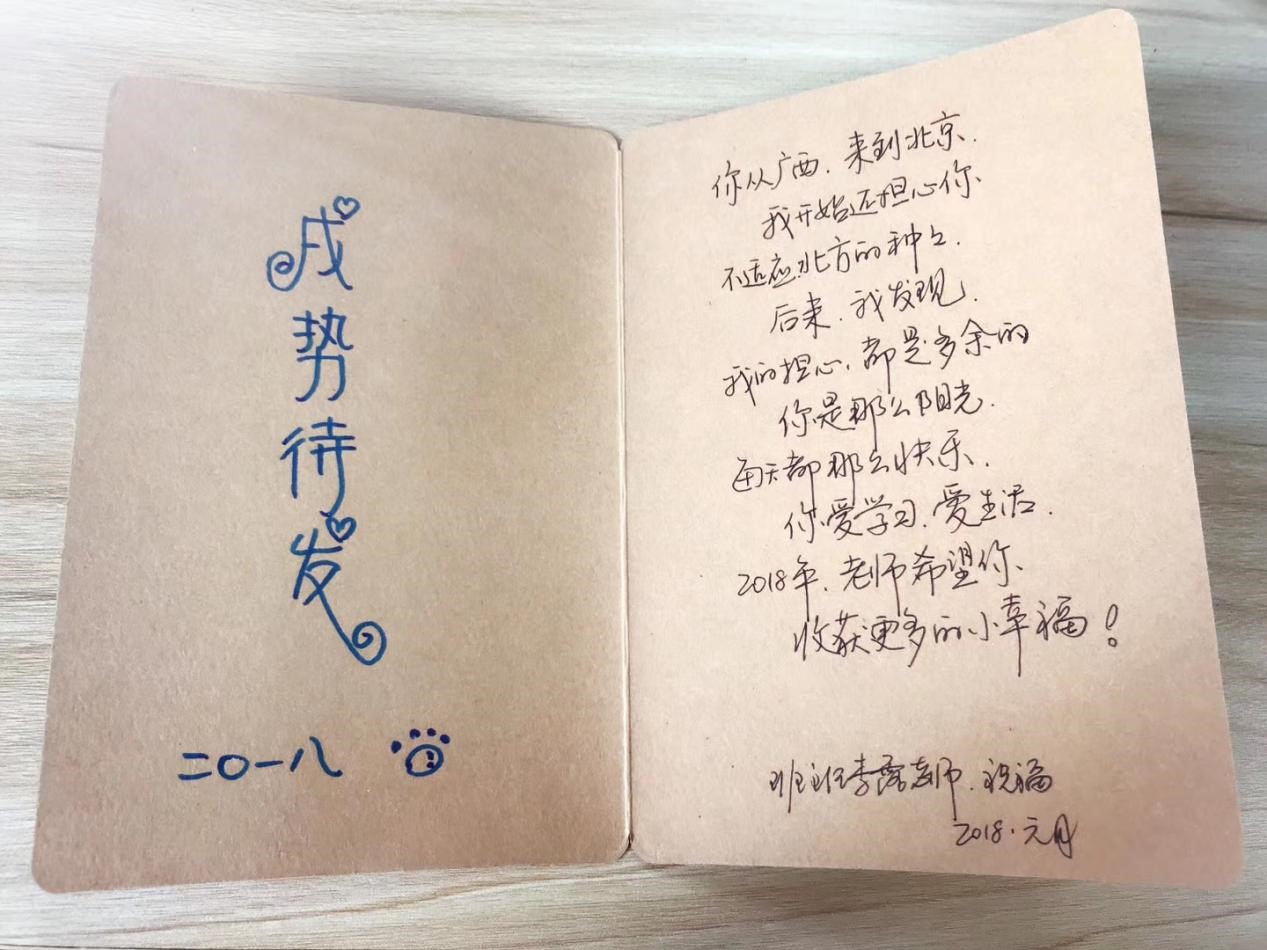 戌势待发
二〇一八
你从广西.来到北京.
我开始还担心你、
不适应北方的种々.
后来.我发现.
我的担心.都是多余的
你是那么阳光.
每天都那么快乐.
你爱学习.爱生活.
2018年.老师希望你、
收获更多的小幸福！
班主任李露老师.祝福
2018.元月